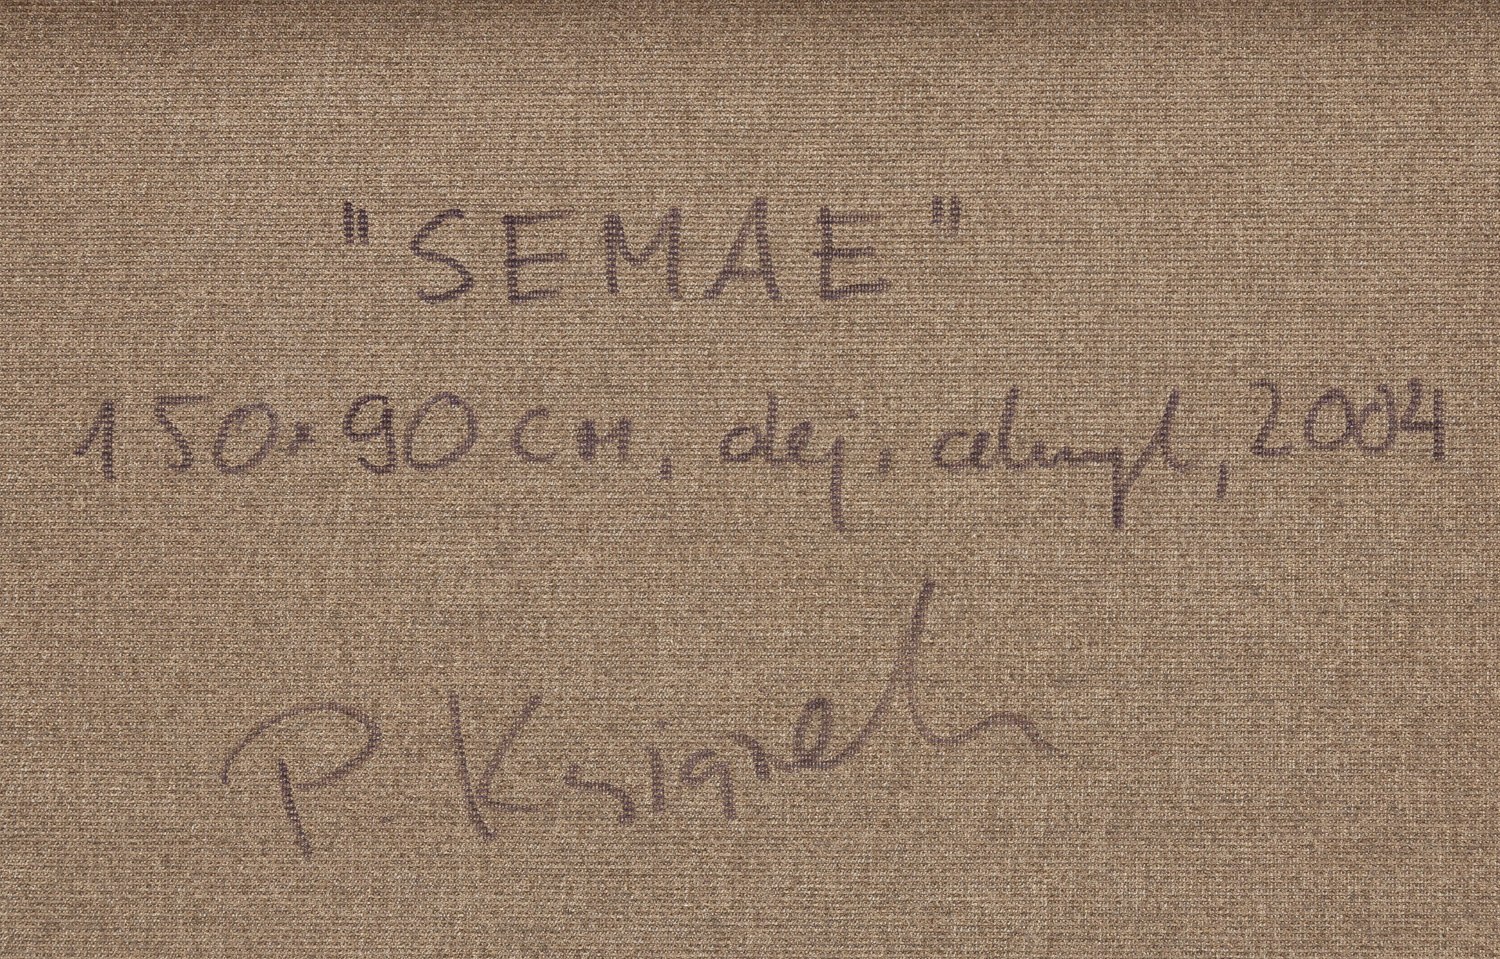 "SEMAE"
150×90 cm, olej, akryl, 2004
P. Książek